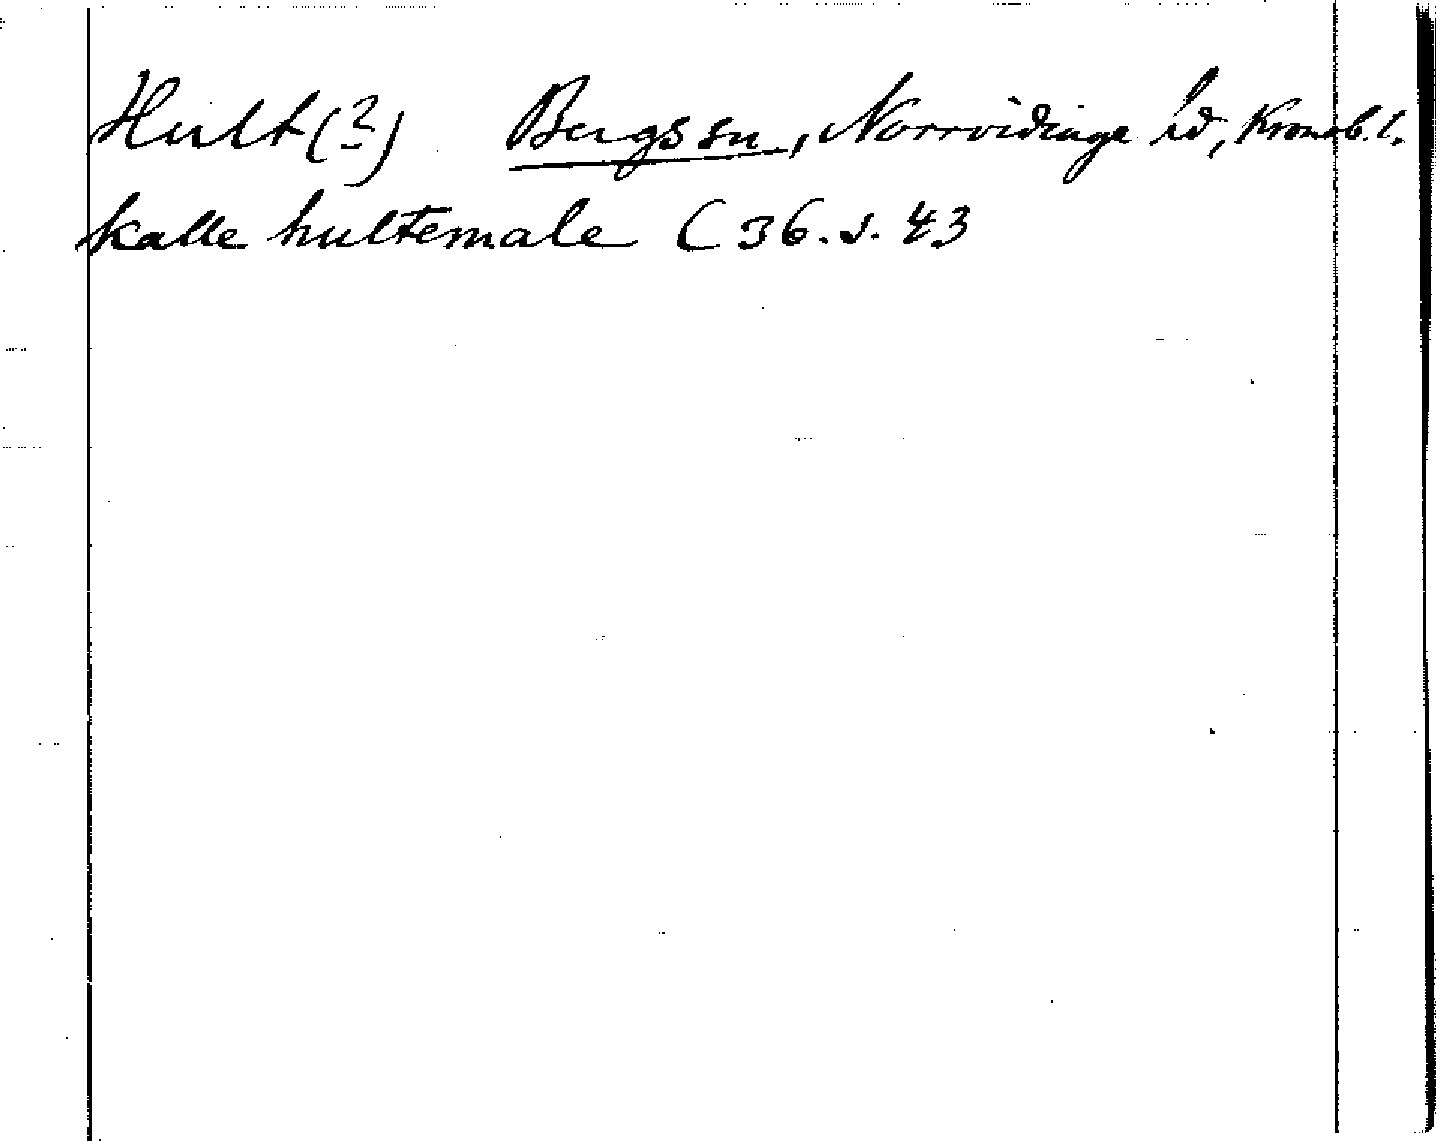 Hult(?) Bergs sn, Norrvidinge hd, Kronob. l.
kalle hultemale C 36. s. 43